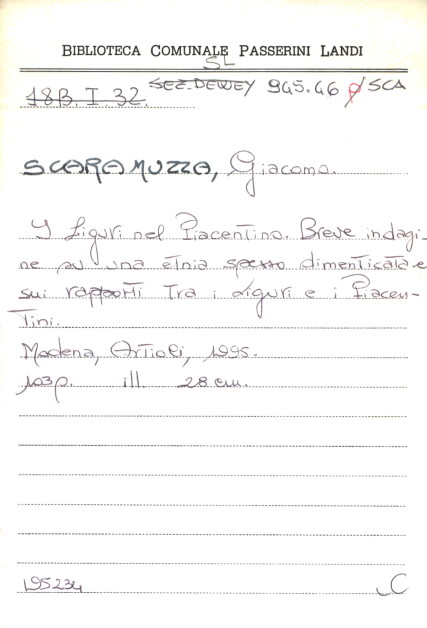 BIBLIOTECA COMUNALE PASSERINI LANDI
SL
18B. I. 32. SEZ. DEWEY 945.46 /SCA
SCARAMUZZA, Giacomo.
I Liguri nel Piacentino. Breve indagi-
ne su una etnia spesso dimenticata e
sui rapporti tra i Liguri e i Piacen-
tini.
Modena, Artioli, 1995.
103p. ill. 28 cm.
195234 C